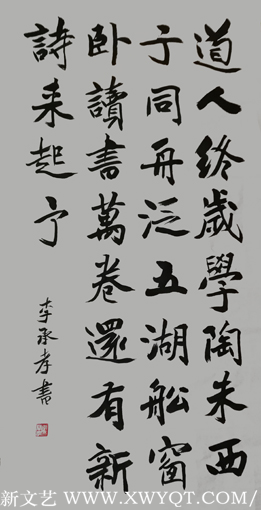 道人終歲學陶朱西
子同舟泛五湖舩窗
卧讀書萬卷還有新
詩来起予
李承孝書
新文艺 WWW.XWYQT.COM/